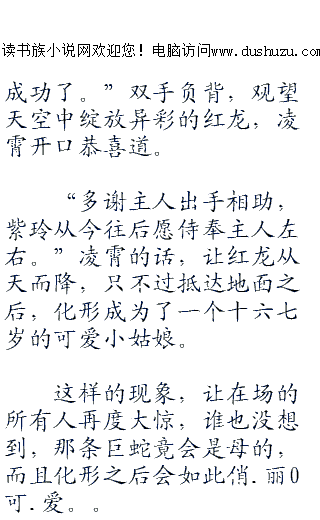 读书族小说网欢迎您！电脑访问www.dushuzu.com
成功了。”双手负背，观望
天空中绽放异彩的红龙，凌
霄开口恭喜道。
“多谢主人出手相助，
紫玲从今往后愿侍奉主人左
右。”凌霄的话，让红龙从
天而降，只不过抵达地面之
后，化形成为了一个十六七
岁的可爱小姑娘。
这样的现象，让在场的
所有人再度大惊，谁也没想
到，那条巨蛇竟会是母的，
而且化形之后会如此俏.丽0
可.爱。。